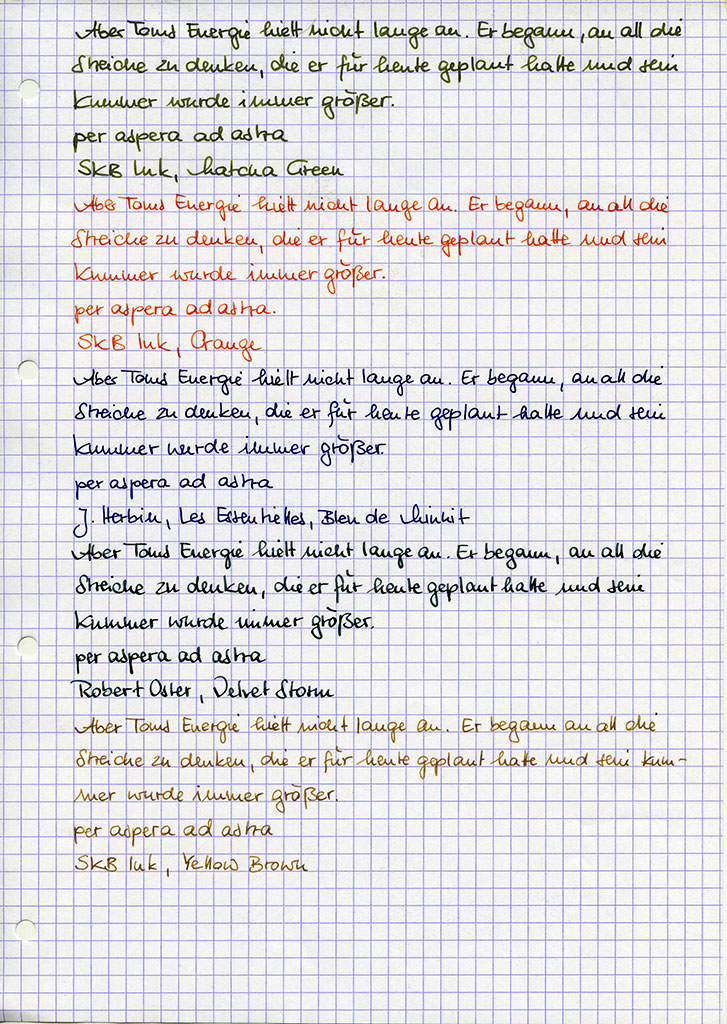 Aber Toms Energie hielt nicht lange an. Er begann, an all die
Streiche zu denken, die er für heute geplant hatte und sein
Kummer wurde immer größer.
per aspera ad astra
SKB Ink, Matcha Green
Aber Toms Energie hielt nicht lange an. Er begann, an all die
Streiche zu denken, die er für heute geplant hatte und sein
Kummer wurde immer größer.
per aspera ad astra.
SKB Ink, Orange
Aber Toms Energie hielt nicht lange an. Er begann, an all die
Streiche zu denken, die er für heute geplant hatte und sein
Kummer wurde immer größer.
per aspera ad astra
J. Herbin, Les Essentielles, Bleu de Minuit
Aber Toms Energie hielt nicht lange an. Er begann, an all die
Streiche zu denken, die er für heute geplant hatte und sein
Kummer wurde immer größer.
per aspera ad astra
Robert Oster, Velvet Storm
Aber Toms Energie hielt nicht lange an. Er begann an all die
Streiche zu denken, die er für heute geplant hatte und sein Kum-
mer wurde immer größer.
per aspera ad astra
SKB Ink, Yellow Brown